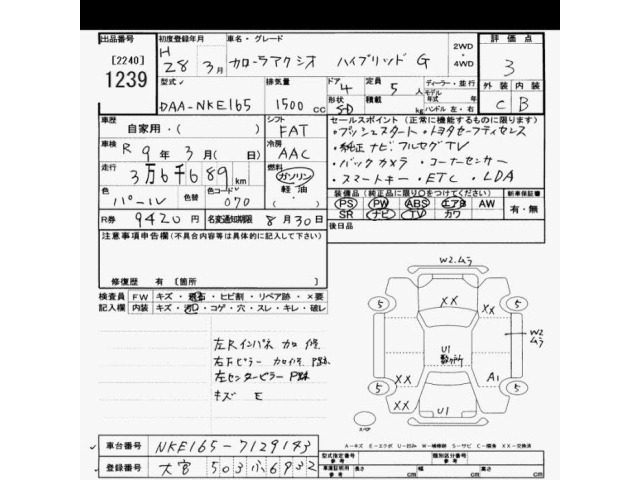 出品番号 初度登録年月 車名・グレード 2WD ・ 4WD 評価点
[2240] H 28年 3月 カローラアクシオ ハイブリッド G 3
1239 型式 排気量 ドア 定員 ディーラー・並行 外装 内装
DAA-NKE165 1500cc 4 5人 モデル年式 年 C B
形状 SD 積載 kg ハンドル 左・右
車歴 シフト セールスポイント(正常に機能するものに限り)
自家用・( ) FAT ・プッシュスタート・トヨタセーフティセンス
車検 R 9年 3月(日) 冷房 AAC ・純正ナビフルセグTV
走行 燃料 ・バックカメラ ・コーナーセンサー
3万6千689km ガソリン 軽油 ・スマートキー・ETC・LDA
色 色替 色コード 装備品(純正品に限り○をつけてください) 新車保証書
パール 070 PS PW ABS エアB AW 有・無
R券 9420円 名変通知期限 8月30日 SR ナビ TV カワ
注意事項申告欄(不具合内容等は具体的に記入して下さい) 後日品
修復歴 有 [箇所
W2.ムラ
検査員記入欄 FW キズ・飛石・ヒビ割・リペア跡・×要
内装 キズ・汚・コゲ・穴・スレ・キレ・破レ
5 XX XX 5
左Rインパネ カロ修
W2 ムラ
右Fピラー カロ修 P跡
U1
左センターピラー P跡
XX A1
キズ E
5 XX U1 5
スペア
A-キズ E-エクボ U-凹み W-補修跡 S-サビ C-腐食 XX-交換済
車台番号 NKE165-7129143 型式指定番号 参考 類別区分番号 参考
登録番号 大宮 503ふ6932 車庫証明用 参考 長さ cm 幅 cm 高さ cm